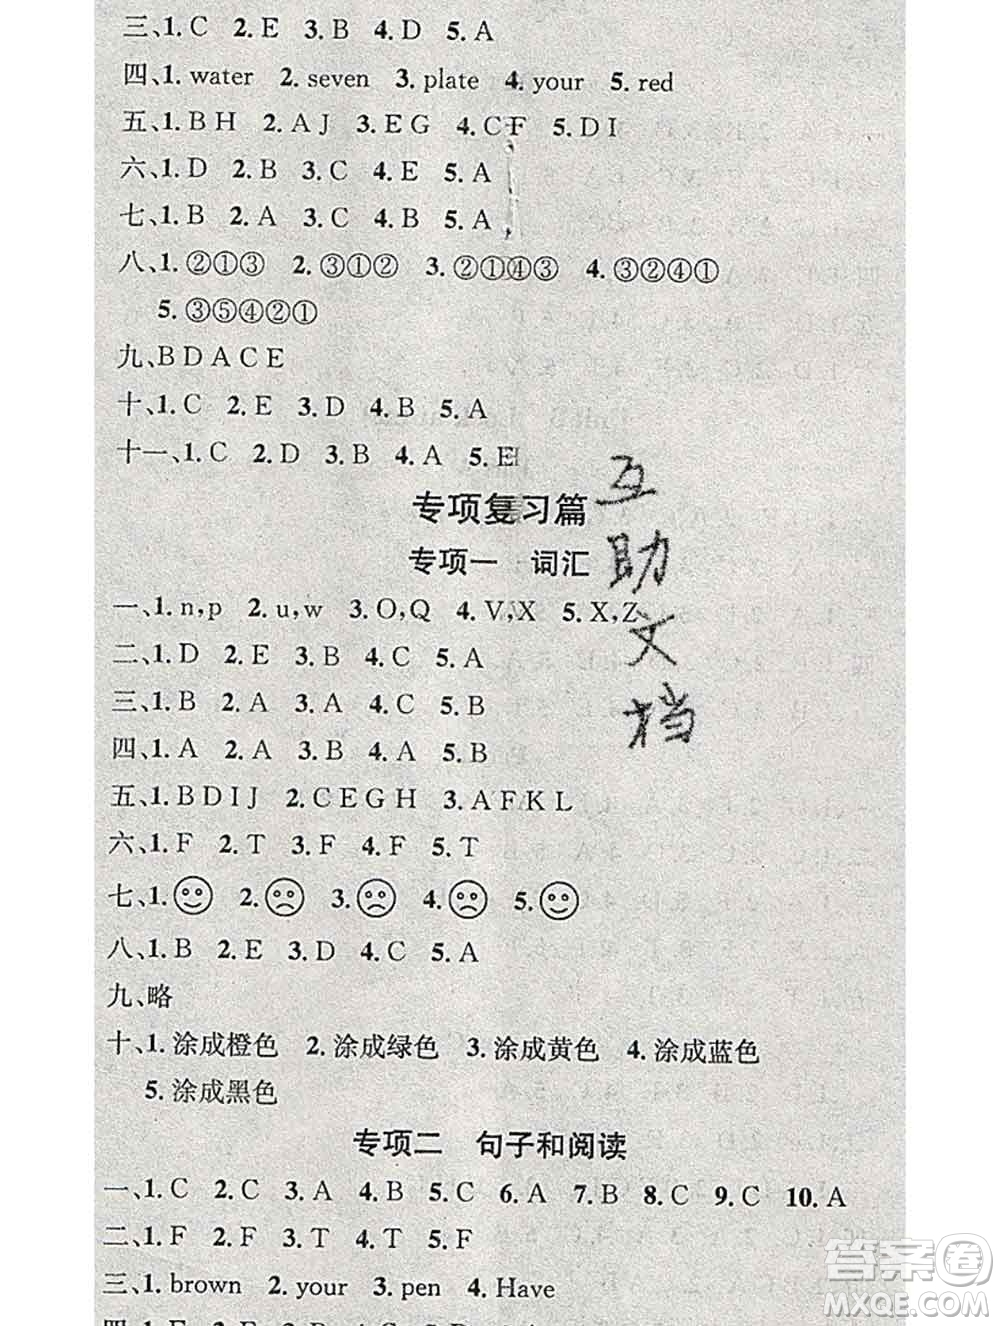 三、1. C 2. E 3. B 4. D 5. A
四、1. water 2. seven 3. plate 4. your 5. red
五、1. B H 2. A J 3. E G 4. C F 5. D I
六、1. D 2. B 3. C 4. E 5. A
七、1. B 2. A 3. C 4. B 5. A
八、1. ②①③ 2. ③①② 3. ②①④③ 4. ③②④①
5. ③⑤④②①
九、B D A C E
十、1. C 2. E 3. D 4. B 5. A
十一、1. C 2. D 3. B 4. A 5. E
专项复习篇
专项一 词汇
一、1. n,p 2. u,w 3. O,Q 4. V,X 5. X,Z
二、1. D 2. E 3. B 4. C 5. A
三、1. B 2. A 3. A 4. C 5. B
四、1. A 2. A 3. B 4. A 5. B
五、1. B D I J 2. C E G H 3. A F K L
六、1. F 2. T 3. F 4. F 5. T
七、1. 2. 3. 4. 5.
八、1. B 2. E 3. D 4. C 5. A
九、略
十、1. 涂成橙色 2. 涂成绿色 3. 涂成黄色 4. 涂成蓝色
5. 涂成黑色
专项二 句子和阅读
一、1. C 2. C 3. A 4. B 5. C 6. A 7. B 8. C 9. C 10. A
二、1. F 2. F 3. T 4. T 5. F
三、1. brown 2. your 3. pen 4. Have
互助文档
答案卷
MXQE.COM